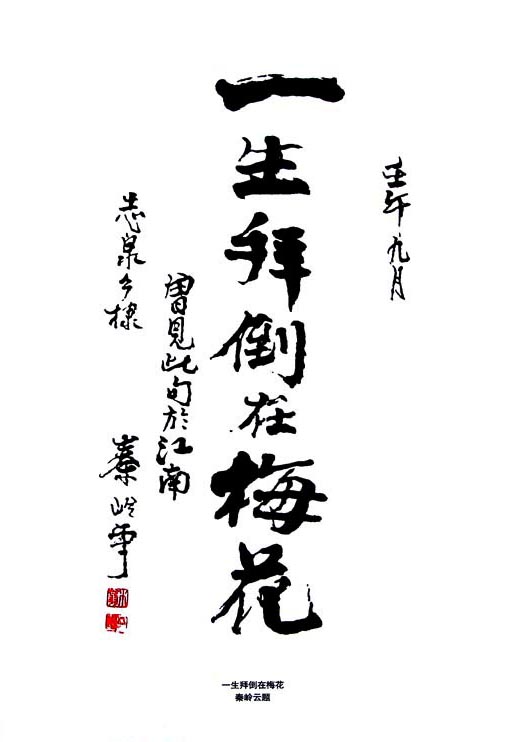 壬午九月
一生拜倒在梅花
曾見此句於江南
志泉乡棣
秦岭雲
一生拜倒在梅花
秦岭云题